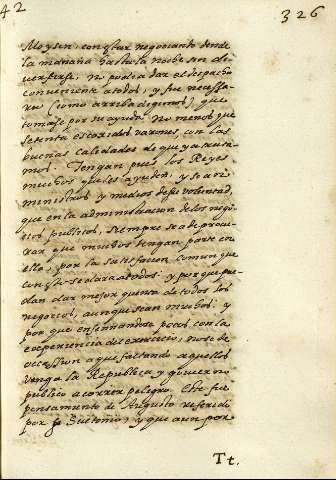 42
326
Moysen: con estar negociando desde
la mañana hasta la noche sin di
vertirse, no podia dar despacho
conveniente a todos, y fue necessa-
rio (como arriba digimos) que
tomase por su ayuda no menos que
setenta escogidos varones, con las
buenas calidades de que ya trata
mos. Tengan pues los Reyes
muchos que les ayuden, y sean
ministros y medios de su voluntad,
que en la administracion de los nego-
cios publicos, siempre se a de procu-
rar que muchos tengan parte en
ello, por la satisfacion comun que
con esto se dara a todos: y por que pue-
dan dar mejor quenta de todos los
negocios, aunque sean muchos: y
por que enseñandose pocos con la
experiencia del exercicio, no se de
occassion a que faltando aquellos
venga la Republica y govierno
publico a correr peligro. Este fue
pensamiento de Augusto referido
por Suetonio, y que aun por
Tt.